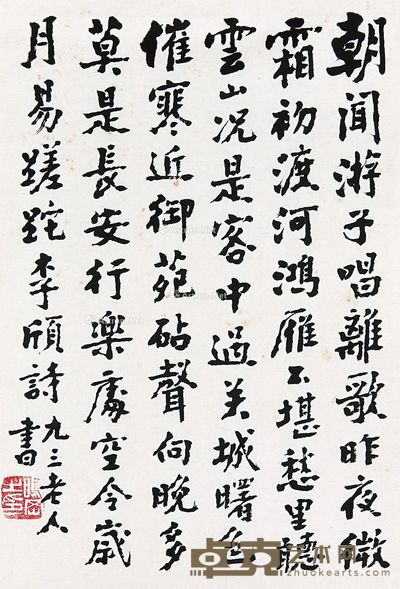 朝聞游子唱離歌昨夜微
霜初渡河鴻雁不堪愁里聽
雲山况是客中過关城曙色
催寒近御苑砧聲向晚多
莫是長安行樂處空令歲
月易蹉跎李頎詩九三老人
書
卓克艺术网
zhuokearts.com